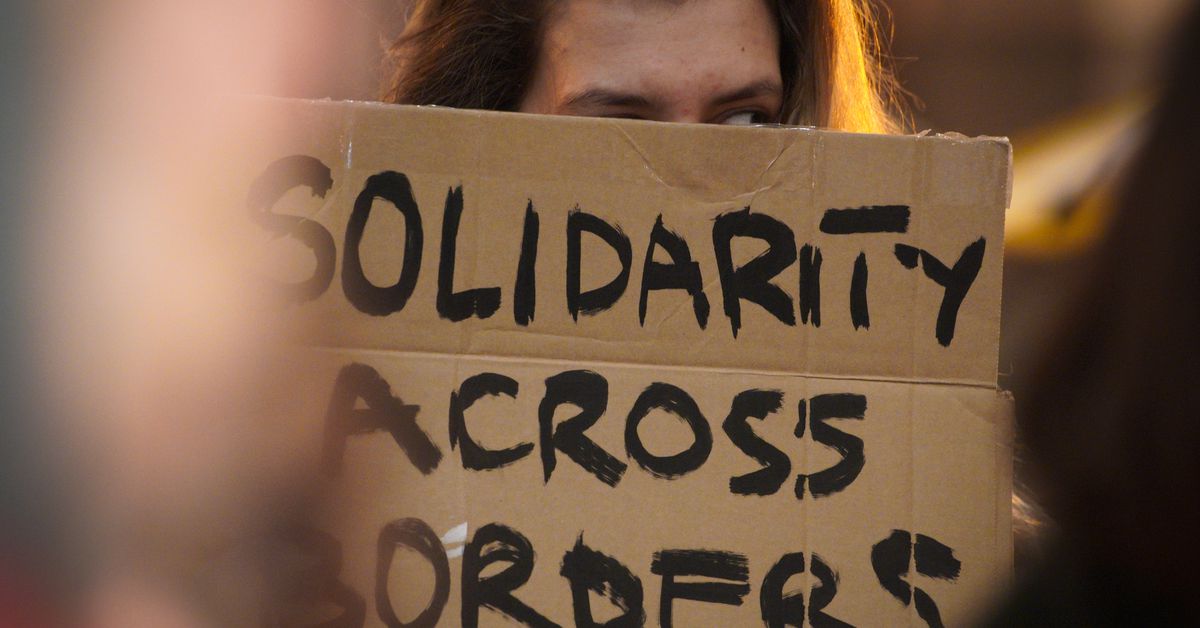 SOLIDARITY
ACROSS
BORDERS